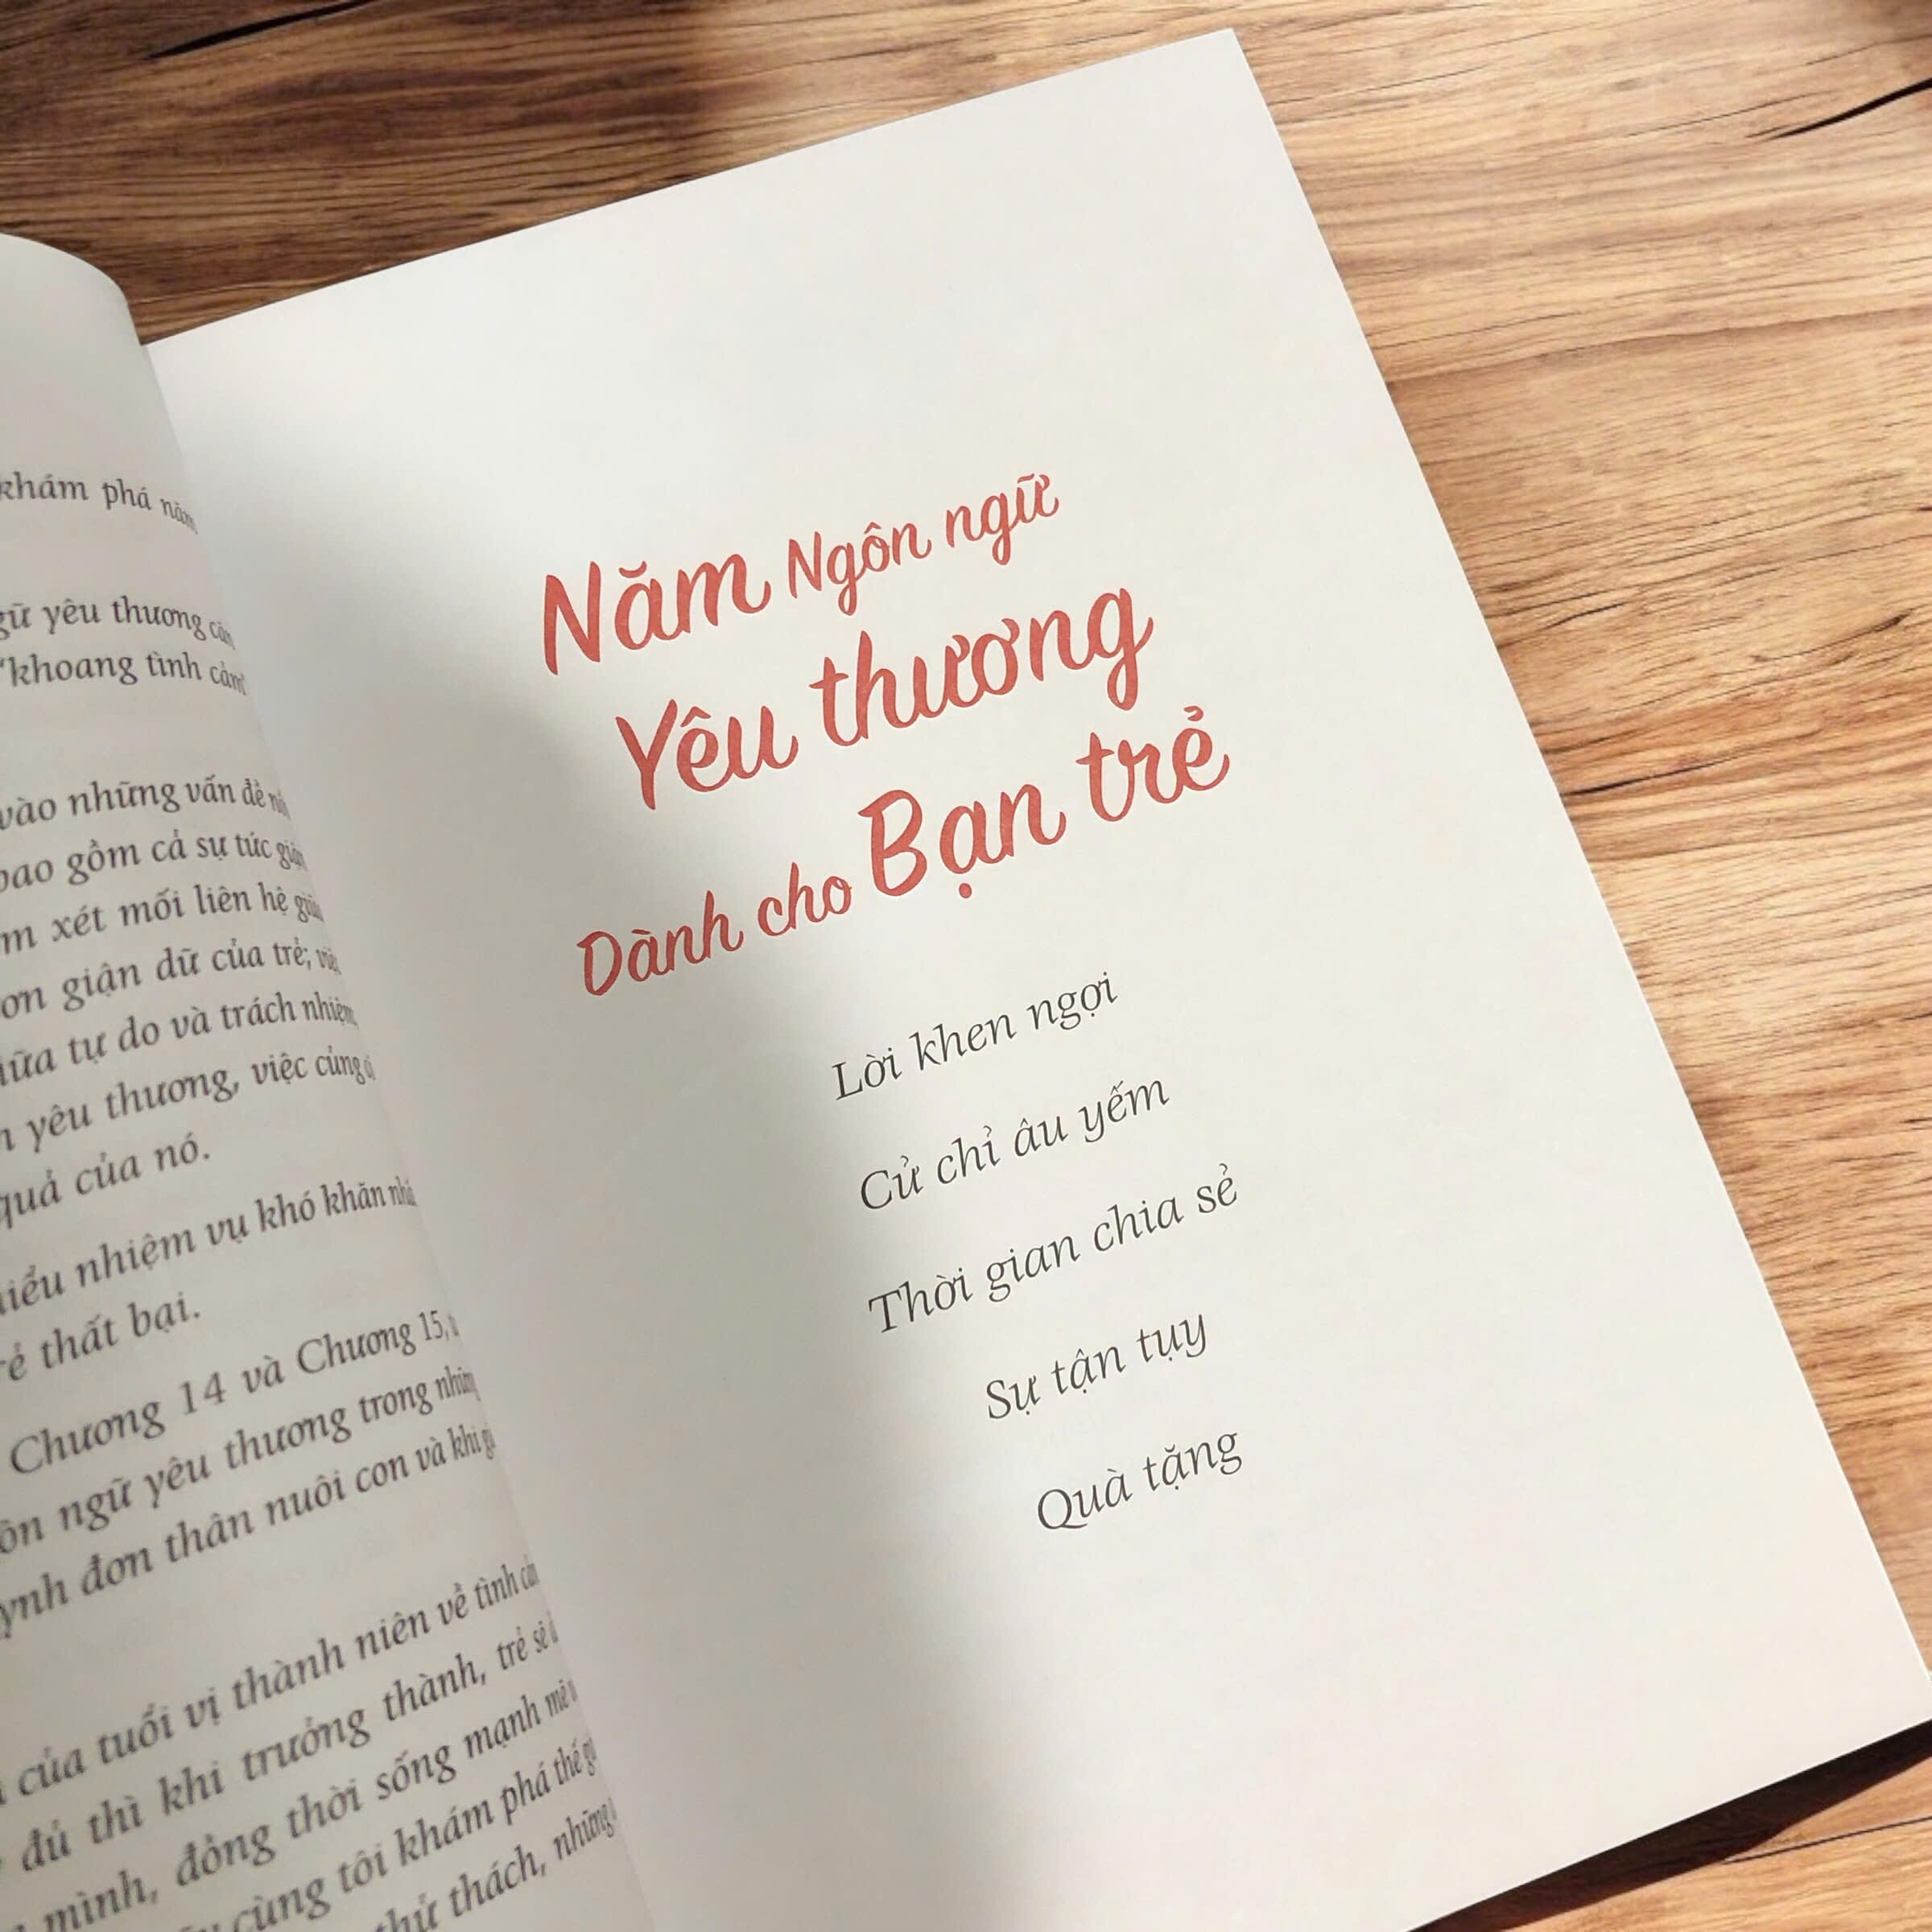 khám phá năm
yêu thương
"khoang tình cảm"
vào những vấn đề
bao gồm cả sự tức giận
xét mối liên hệ
giận dữ của trẻ; việc
tự do và trách nhiệm,
yêu thương, việc củng
quả của nó.
nhiệm vụ khó khăn
thất bại.
Chương 14 và Chương 15,
ngữ yêu thương trong những
đơn thân nuôi con và khi
của tuổi vị thành niên về tình
đủ thì khi trưởng thành, trẻ sẽ
mình, đồng thời sống mạnh mẽ
cùng tôi khám phá thế
thử thách, những
Năm Ngôn ngữ
Yêu thương
Dành cho Bạn trẻ
Lời khen ngợi
Cử chỉ âu yếm
Thời gian chia sẻ
Sự tận tụy
Quà tặng